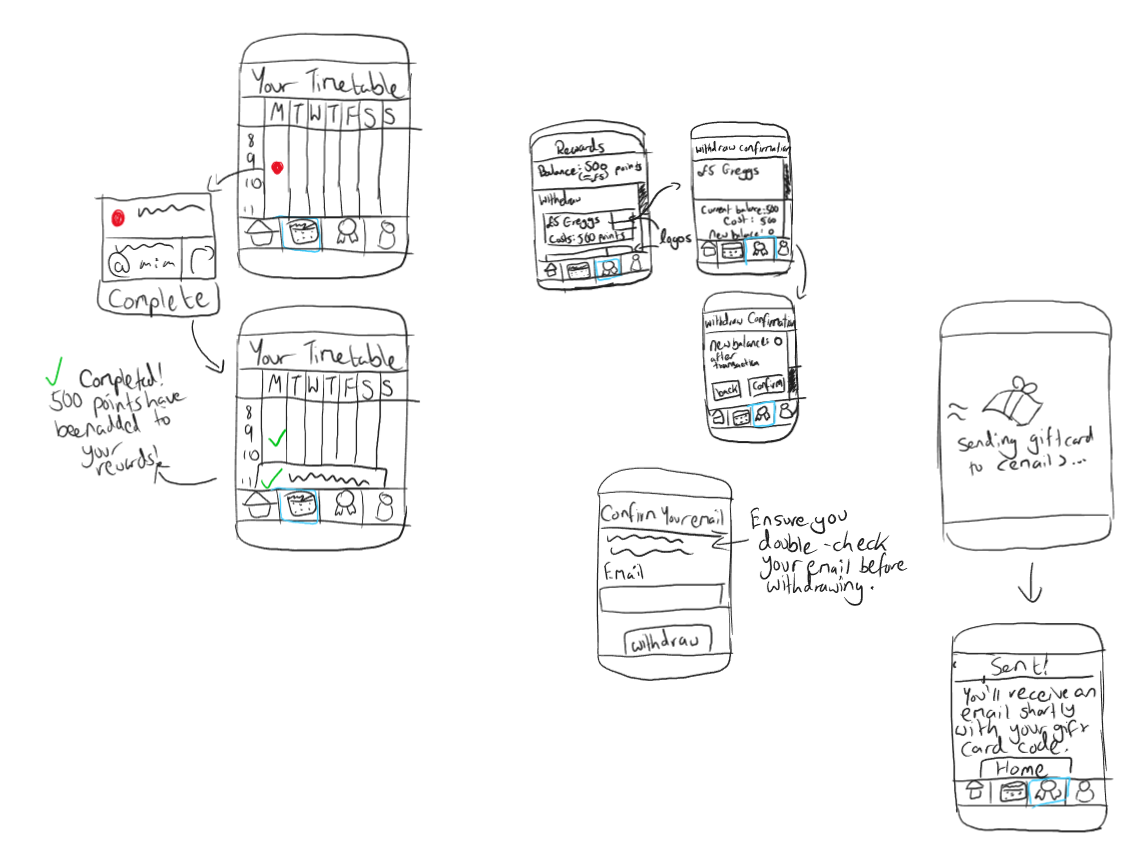 Your Timetable
M T W T F S S
8
9
10
11
@ mim
Complete
Your Timetable
M T W T F S S
8
9
10
11
Completed!
500 points have
been added to
your
rewards!
Rewards
Balance: 500 points
(= £5)
Withdraw
£5 Greggs
Costs: 500 points
logos
Withdraw Confirmation
£5 Greggs
Current balance: 500
Cost: 500
New balance: 0
Withdraw Confirmation
New balance: 0
after
transaction
back
Confirm
Confirm Your email
Email
withdraw
Ensure you
double-check
your email before
withdrawing.
Sending giftcard
to <email>...
Sent!
You'll receive an
email shortly
with your gift
card code.
Home